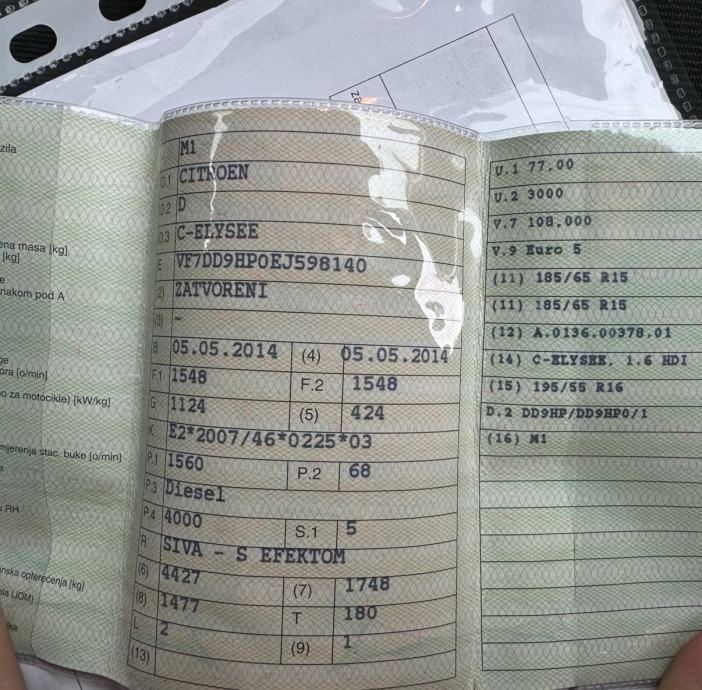 zila
ena masa [kg]
[kg]
e
nakom pod A
ge
ora [o/min]
o za motocikle) [kW/kg]
mjerenja stac. buke [o/min]
a
u RH
nska opterećenja [kg]
ela (JOM)
ika
za
M1
D.1 CITROEN
D.2 D
D.3 C-ELYSEE
E VF7DD9HP0EJ598140
(2) ZATVORENI
(3) -
B 05.05.2014 (4) 05.05.2014
F.1 1548 F.2 1548
G 1124 (5) 424
K E2*2007/46*0225*03
P.1 1560 P.2 68
P.3 Diesel
P.4 4000 S.1 5
R SIVA - S EFEKTOM
(6) 4427 (7) 1748
(8) 1477 T 180
L 2 (9) 1
(13)
U.1 77.00
U.2 3000
V.7 108.000
V.9 Euro 5
(11) 185/65 R15
(11) 185/65 R15
(12) A.0136.00378.01
(14) C-ELYSEE, 1.6 HDI
(15) 195/55 R16
D.2 DD9HP/DD9HP0/1
(16) M1